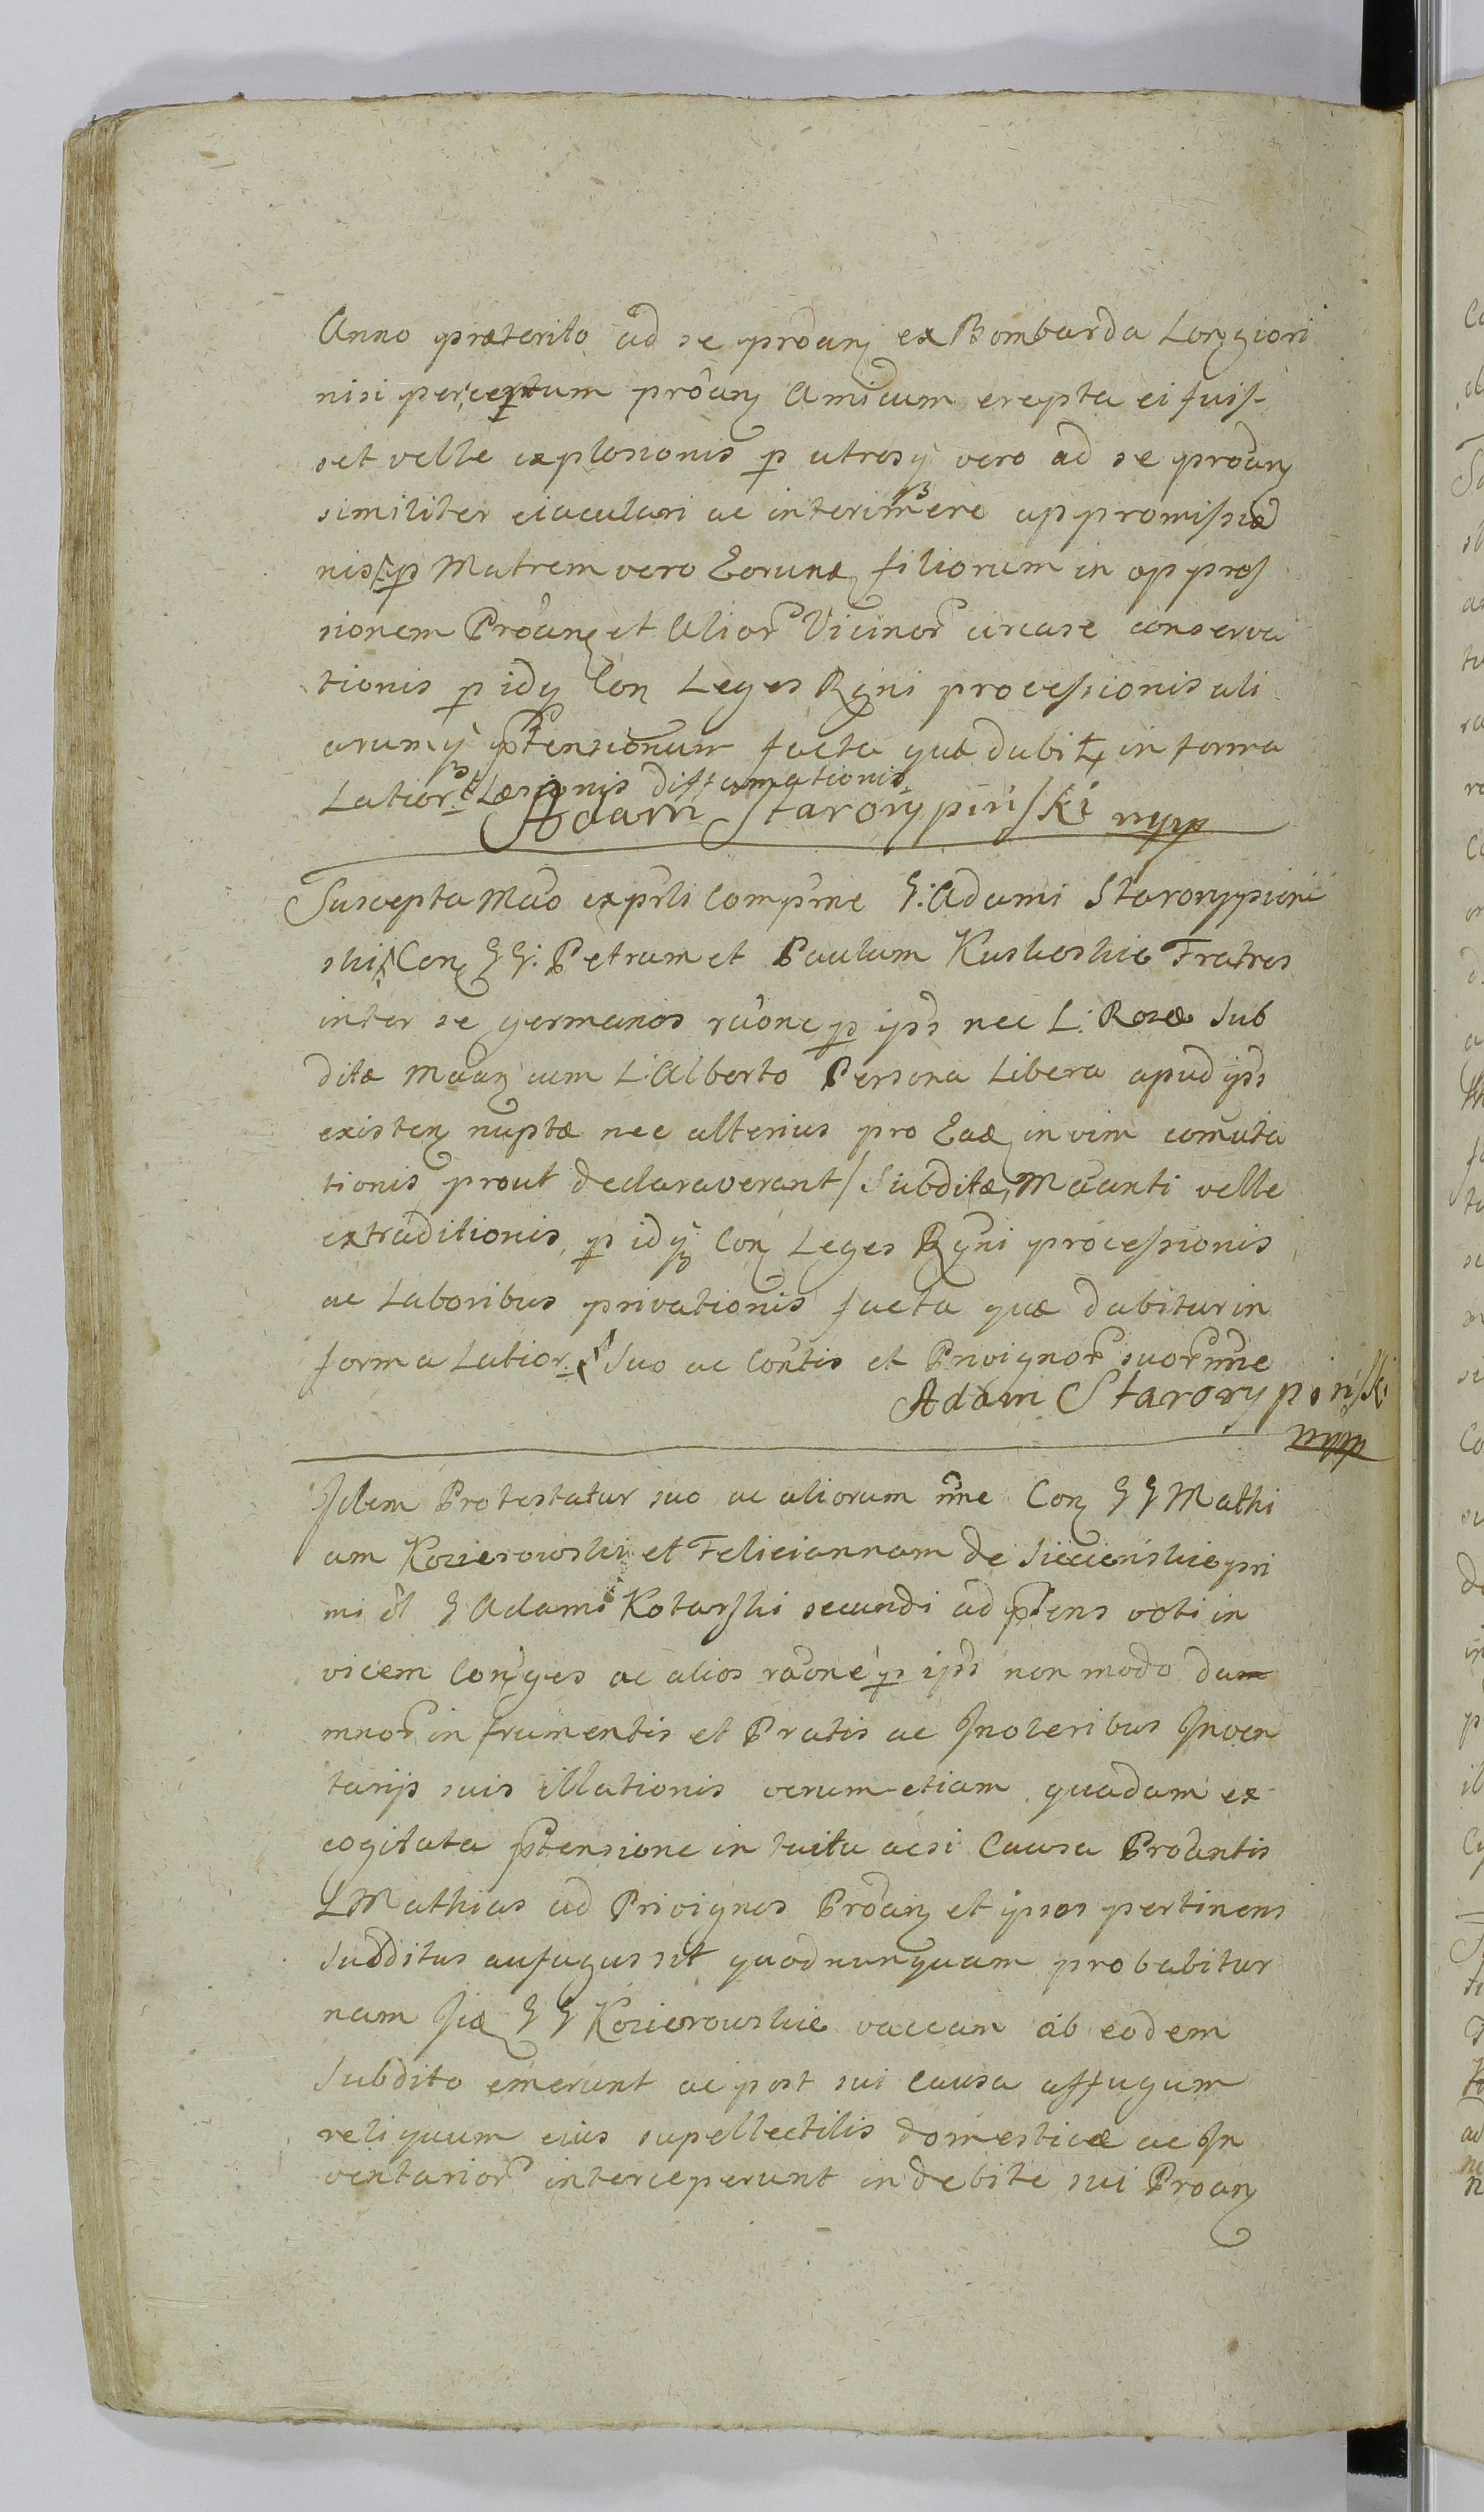 Anno præterito ad se proãn ex Bombarda Longiori
nisi per certum prõan Amicum erepta ei fuis-
set velle explosionis p utrosq vero ad se prõan
similiter eiaculari ac interimere appromissio
nis p Matrem vero Eorund filiorum in oppres
sionem Prõan et Alior Vicinor circa se conserva
tionis p idq Con Leges Rgni processionis ali
arumq prtensionum facta quæ dabitr in forma
Latiori Læsionis diffamationis
Adam Starorypiński mpp
Suscepta Mãõ ex prli Comprine G: Adami Starorypiń
ski Con GG: Petrum et Paulum Kuskoskie Fratres
inter se germanos rãone p ips nec L: Rosæ Sub
ditæ Mãan cum L: Alberto Persona Libera apud ips
existen nuptæ nec alterius pro Ead in vim comuta
tionis prout declaraverant Subditæ Mãanti velle
extraditionis p idq Con Leges Rgni processionis
ac Laboribus privationis facta quæ dabitur in
forma Latiori Suo ac Contis et Privignor suor nne
Adam Starorypiński
mpp
Idem Protestatur suo ac aliorum nne Con GG Mathi
am Kozierowski et Feliciannam de Siecienskie pri
mi et G Adami Kotarski secundi ad prtens voti in
vicem Conges ac alios rãone p ips non modo dam
mnor in frumentis et Pratis ac Inoleribus Inven
tarijs suis illationis verum etiam quadam ex
cogitata prtensione intuitu acsi Causa Prõantis
L Mathias ad Privignos Prõan et ipsos pertinens
Subditus aufugus sit quod nunquam probabitur
nam Iid GG Kozierowskie vaccam ab eodem
Subdito emerunt ac post sui causa affugum
reliquum eius supellectilis domesticæ ac In
ventarior interceperunt indebite sui Prõan